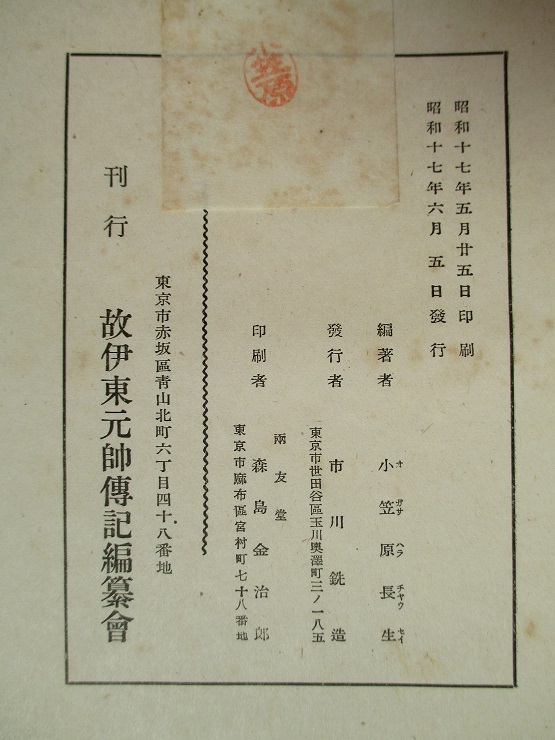 昭和十七年五月廿五日印刷
昭和十七年六月五日發行
編著者 小笠原長生
オガサハラチヤウセイ
發行者 市川銑造
東京市世田谷區玉川奧澤町三ノ一八五
印刷者 兩友堂 森島金治郎
東京市麻布區宮村町七十八番地
東京市赤坂區靑山北町六丁目四十八番地
刊行 故伊東元帥傳記編纂會
小笠原